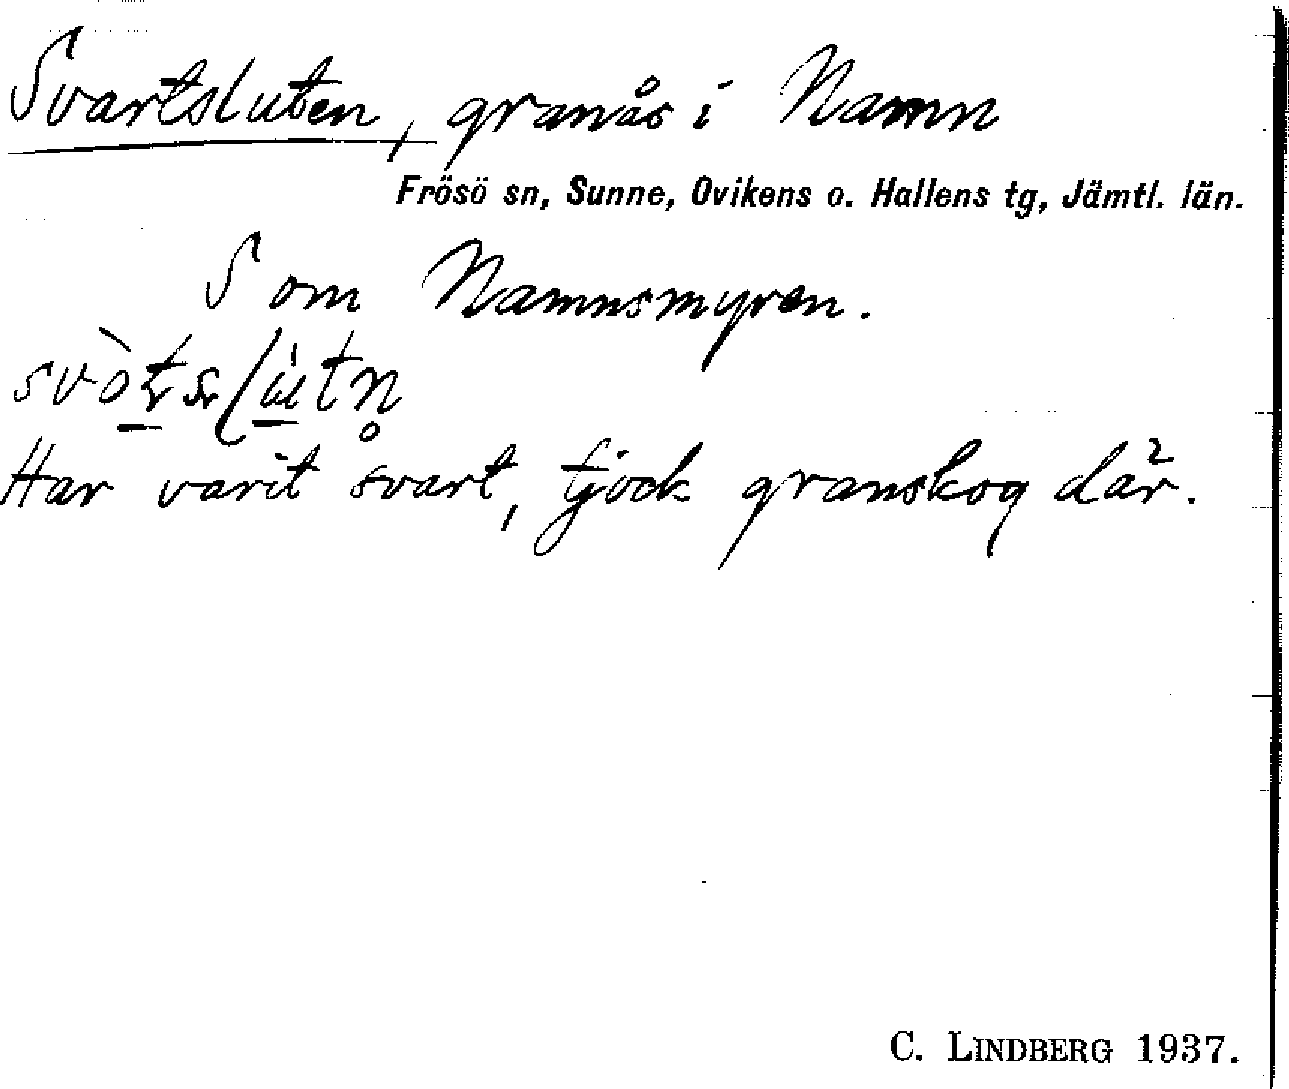 Svartsluten, granås i Namn
Frösö sn, Sunne, Ovikens o. Hallens tg, Jämtl. län.
S om Namnsmyren.
Har varit svart, tjock granskog där.
C. LINDBERG 1937.